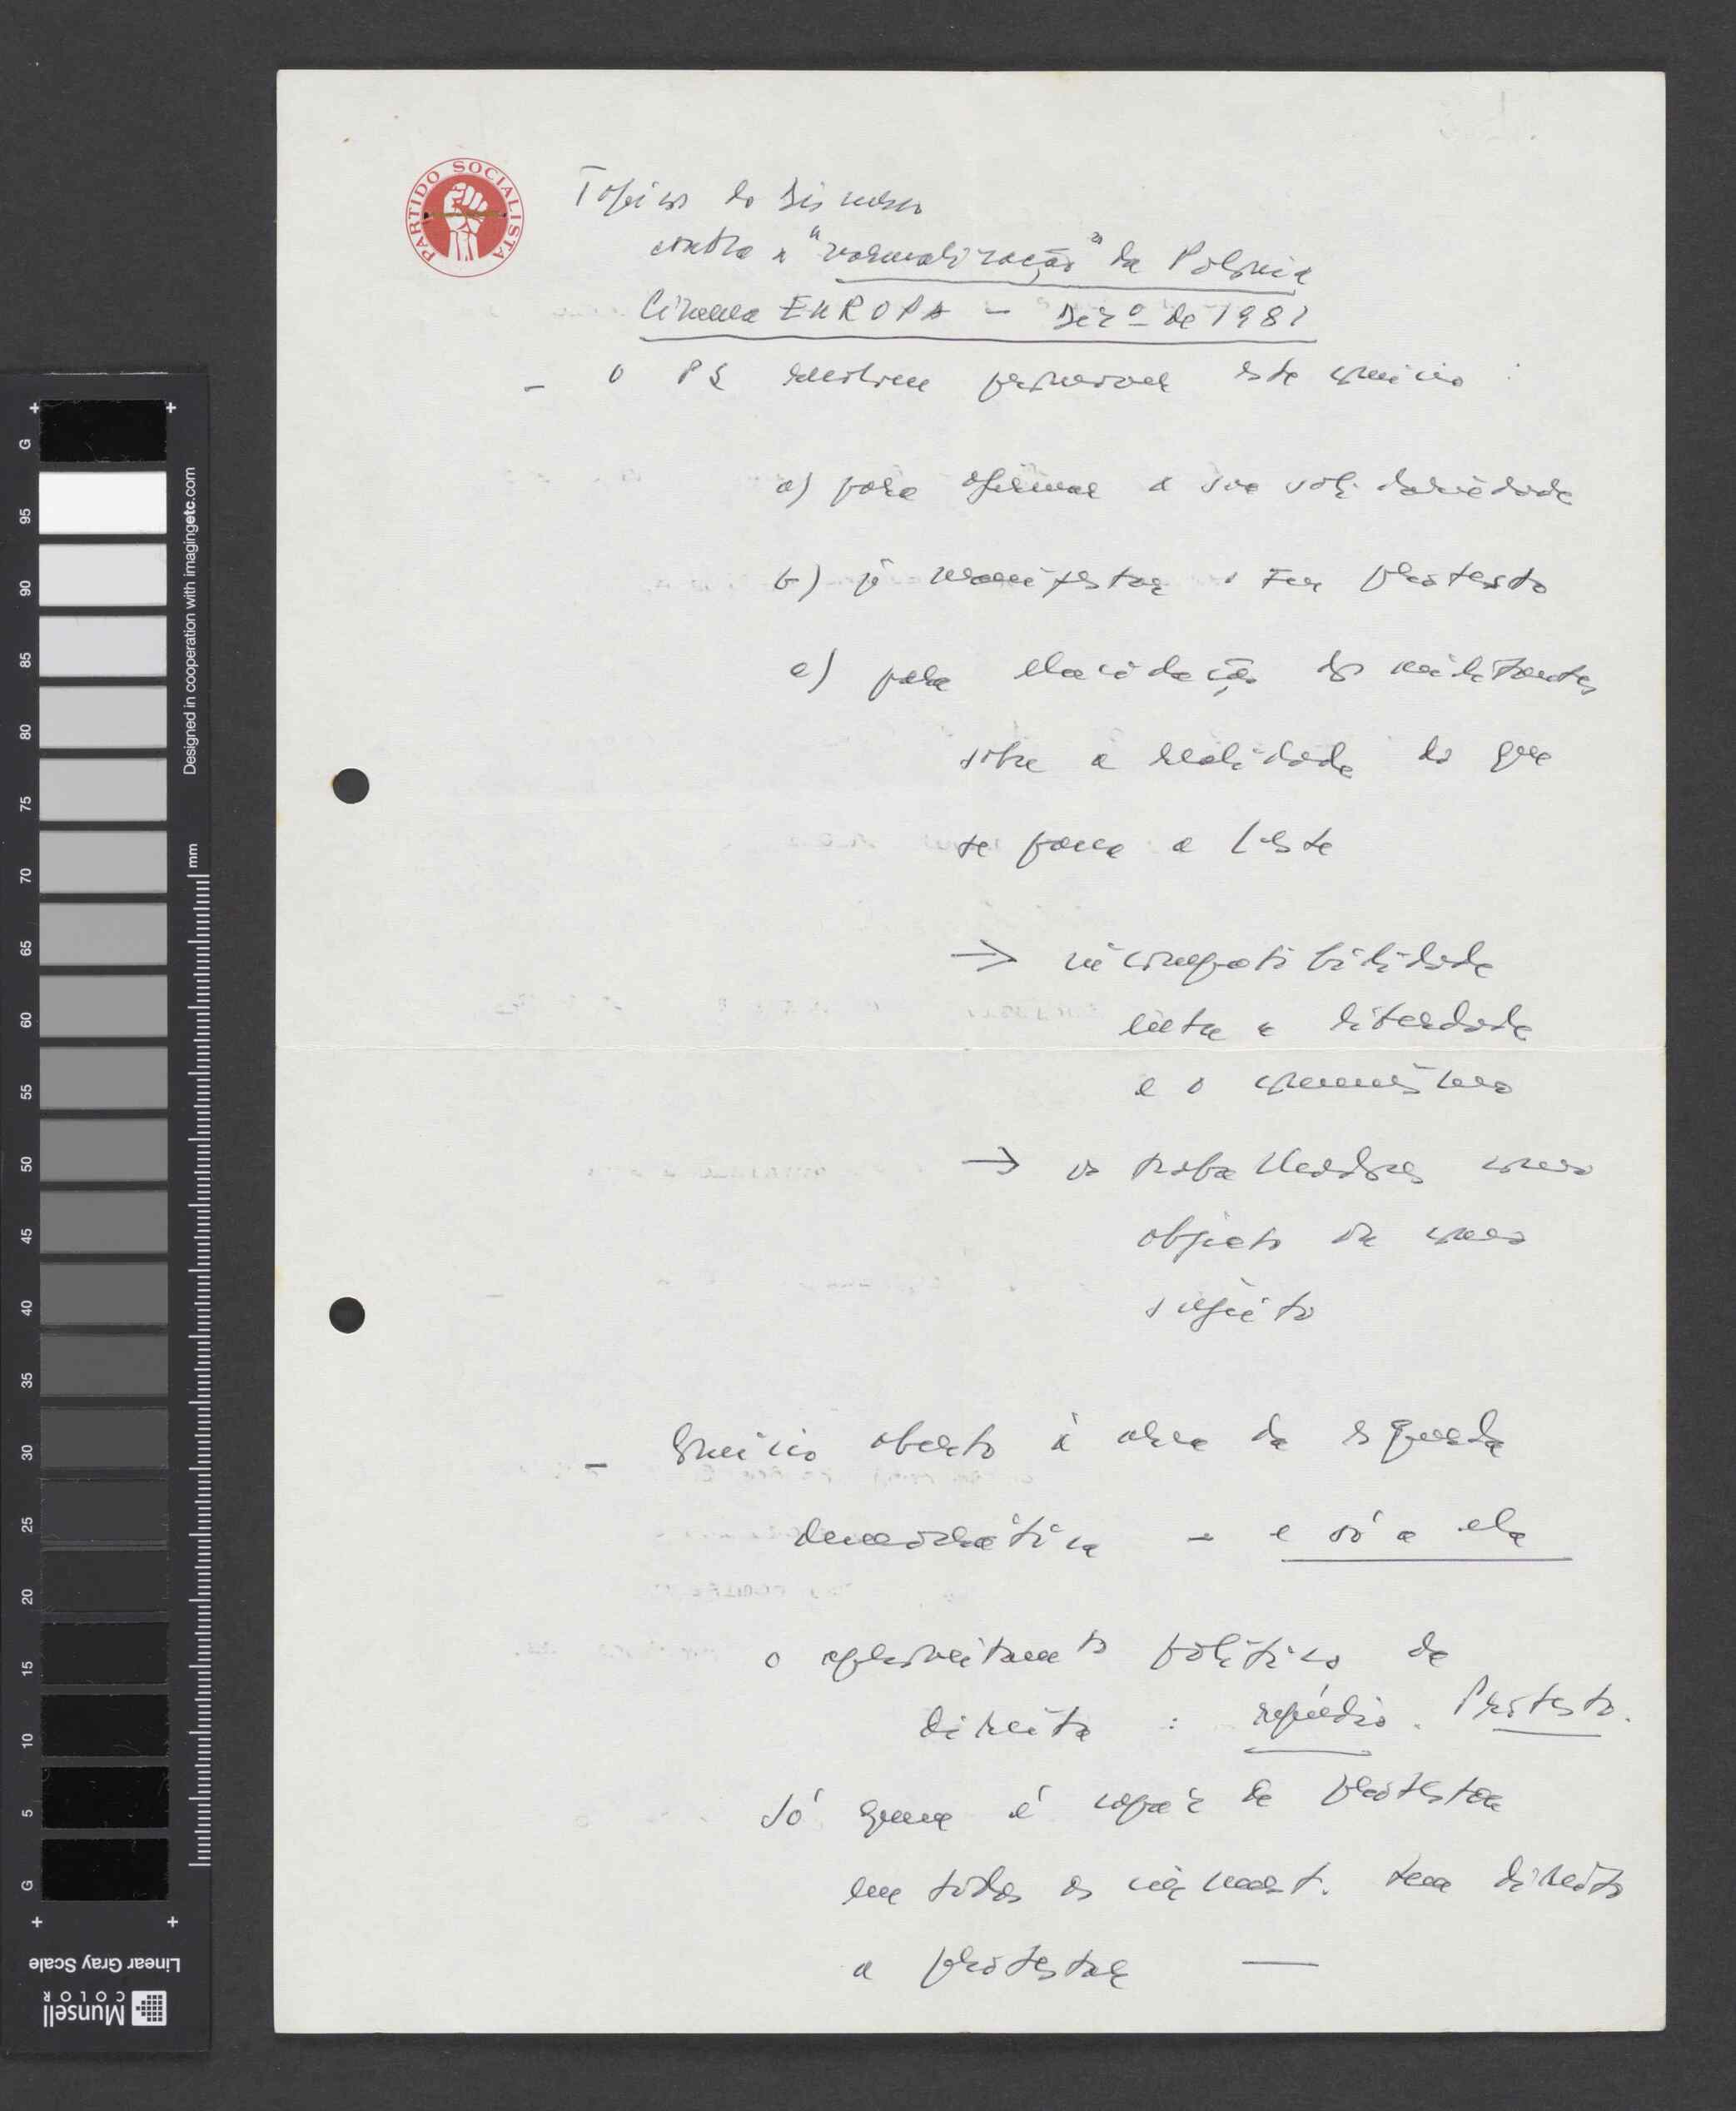 PARTIDO SOCIALISTA
Topicos do Discurso
contra a "normalização" da Polónia
Cinema EUROPA — Dezº de 1981
- O PS resolveu promover este comício :
a) para afirmar a sua solidariedade
b) pª manifestar o seu protesto
c) para elucidação dos militantes
sobre a realidade do que
se passa a Leste
→ incompatibilidade
entre a liberdade
e o comunismo
→ os trabalhadores como
objecto ou como
sujeito
- Comício aberto à área da esquerda
democrática - e só a ela
o aproveitamento político da
direita : repúdio. Protesto.
Só quem é capaz de protestar
em todos os tem direito
a protestar —
Designed in cooperation with imagingetc.com
mm
G
95
90
85
80
75
70
65
60
55
50
45
40
35
30
25
20
15
10
5
G
Linear Gray Scale
Munsell
COLOR